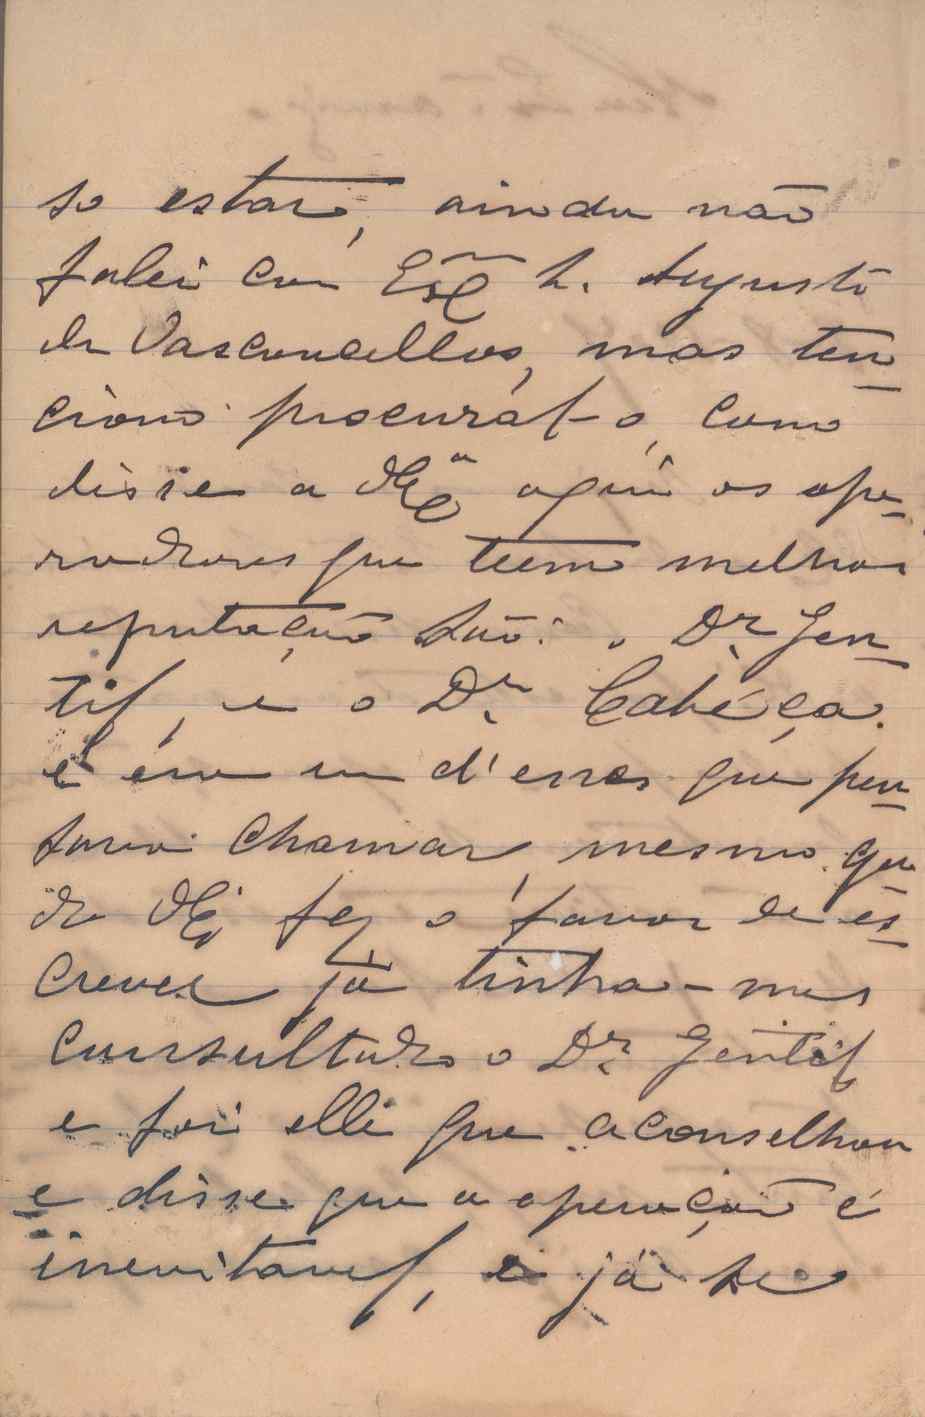 so estar, ainda não
falei com Exmº S. Augusto
de Vasconcellos, mas ten
ciono procural-o, como
disse a V. Exª aqui os ope-
radores que teem melhor
reputação são: o Dr. Gen-
til, e o Dr. Cabéça.
e era um d'esses que pen-
sava chamar, mesmo qu
do V. Ex. fez o favor de es-
crever já tinha-mos
consultado o Dr. Gentil
e foi elle que aconselhou
e disse que a operação é
inevitavel, e já se